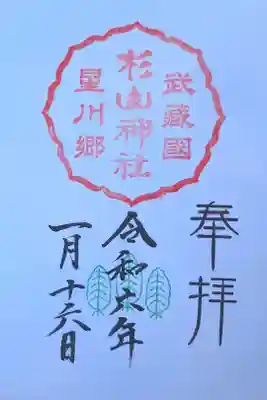 武蔵國
杉山神社
星川郷
奉拝
令和六年
一月十六日